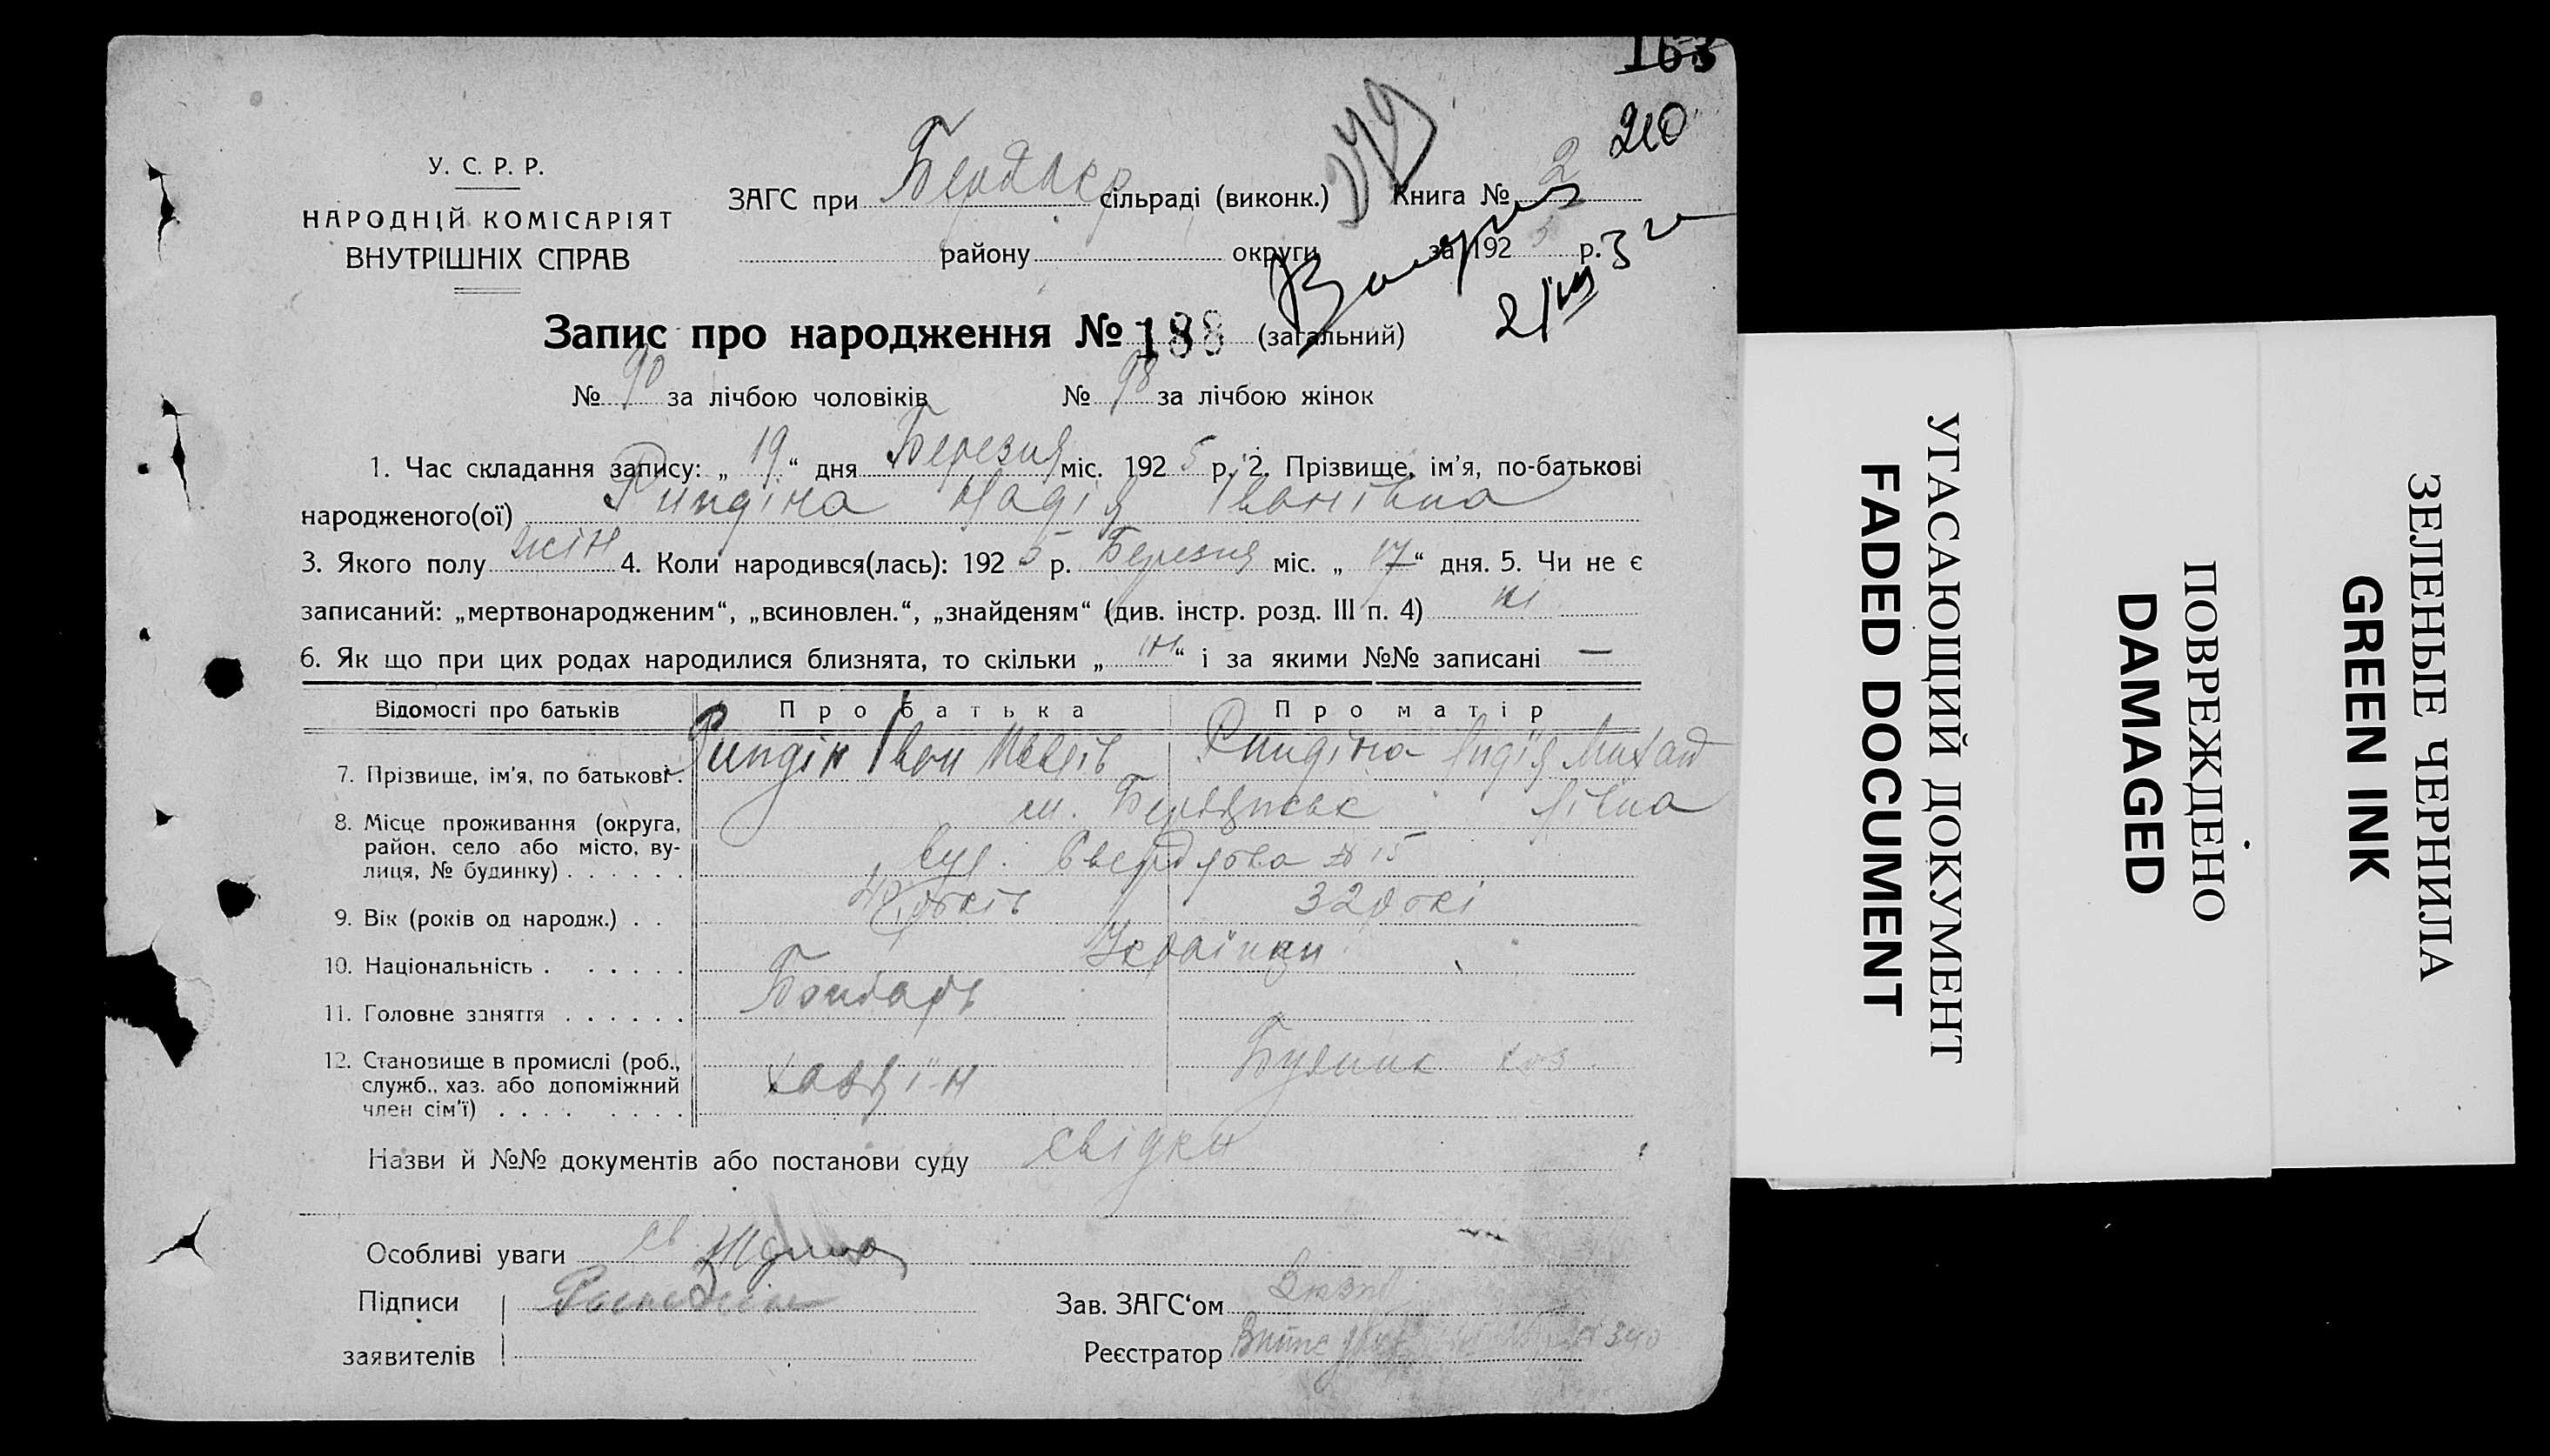 163
210
У. С. Р. Р.
НАРОДНІЙ КОМІСАРІЯТ
ВНУТРІШНІХ СПРАВ
ЗАГС при сільраді (виконк.) Книга № 2
району округи за 192 5 р.
Запис про народження № 188 (загальний)
№ 90 за лічбою чоловіків № 98 за лічбою жінок
1. Час складання запису: „ 19 “ дня Березня міс. 192 5 р. 2. Прізвище, ім'я, по-батькові
народженого(ої) Рындіна Надія Іванівна
3. Якого полу жін 4. Коли народився(лась): 192 5 р. Березня міс. „ 17 “ дня. 5. Чи не є
записаний: „мертвонародженим“, „всиновлен.“, „знайденям“ (див. інстр. розд. III п. 4) ні
6. Як що при цих родах народилися близнята, то скільки „ “ і за якими №№ записані —
Відомості про батьків Про батька Про матір
7. Прізвище, ім'я, по батькові. Іван Лидія Михай
лівна
8. Місце проживання (округа, район, село або місто, вулиця, № будинку) . . . . . . м. Бердянськ
вул. Свердлова № 15
9. Вік (років од народж.) . . років 32 рокі
10. Національність . . . . . . Українци
11. Головне заняття . . . . . . Бондарь
12. Становище в промислі (роб., служб., хаз. або допоміжний член сім'ї) . . . . . . . . хазяїн хоз
Назви й №№ документів або постанови суду свідки
Особливі уваги
Підписи
заявителів
Зав. ЗАГС‘ом
Реєстратор
УГАСАЮЩИЙ ДОКУМЕНТ
FADED DOCUMENT
ПОВРЕЖДЕНО
DAMAGED
ЗЕЛЕНЫЕ ЧЕРНИЛА
GREEN INK